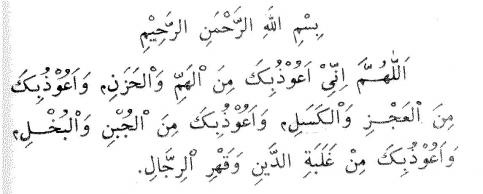 بِسْمِ اللهِ الرَّحْمَنِ الرَّحِيْمِ
اَللّٰهُمَّ اِنِّيْ اَعُوْذُبِكَ مِنَ الْهَمِّ وَالْحَزَنِ، وَاَعُوْذُبِكَ
مِنَ الْعَجْزِ وَالْكَسَلِ، وَاَعُوْذُبِكَ مِنَ الْجُبْنِ وَالْبُخْلِ،
وَاَعُوْذُبِكَ مِنْ غَلَبَةِ الدَّيْنِ وَقَهْرِ الرِّجَالِ.